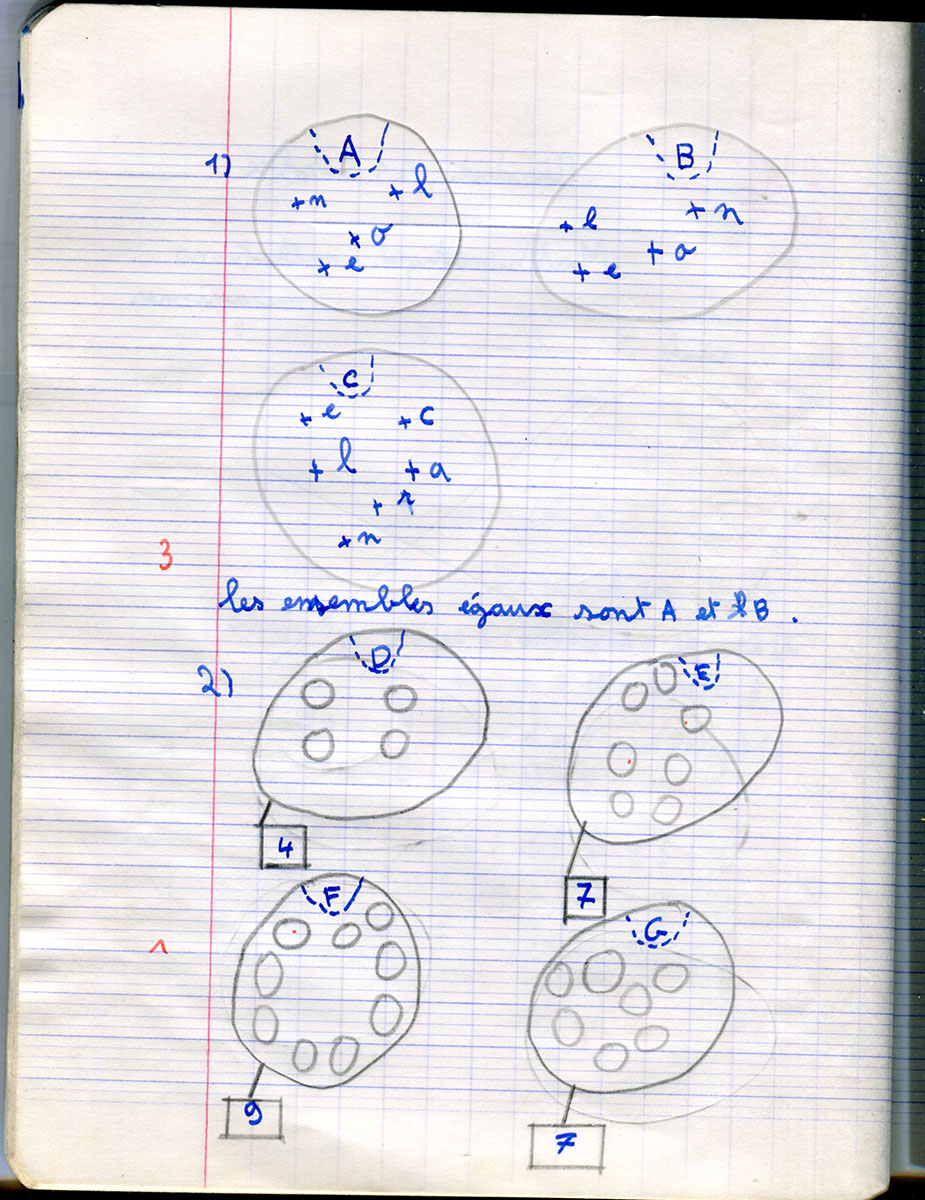 1)
A
+ n
+ l
× o
× e
B
+ l
+ n
+ o
+ e
C
+ e
+ c
+ l
+ a
+ r
× n
3
les ensembles égaux sont A et B.
2)
D
4
E
7
1
F
9
G
7